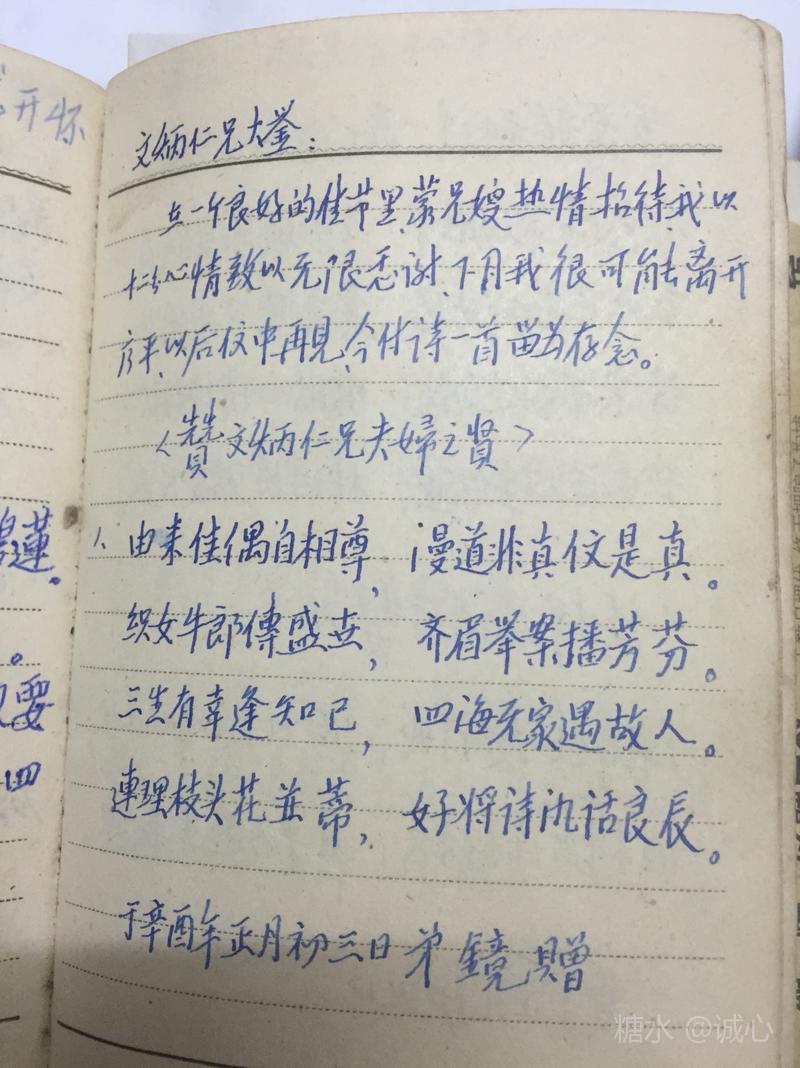 开怀
文炳仁兄大鉴：
在一个良好的佳节里，蒙兄嫂热情招待，我以
十分心情致以无限感谢，下月我很可能去离开
以后仪中再见，今付诗一首留为存念。
〈贊文炳仁兄夫婦之贤〉
1、由来佳偶自相尊，漫道非真仅是真。
织女牛郎傳盛世，齐眉举案播芳芬。
三生有幸逢知己，四海无家遇故人。
連理枝头花並蒂，好将诗酒话良辰。
于辛酉年正月初三日弟鏡贈
蓮。
要
四
糖水 @诚心